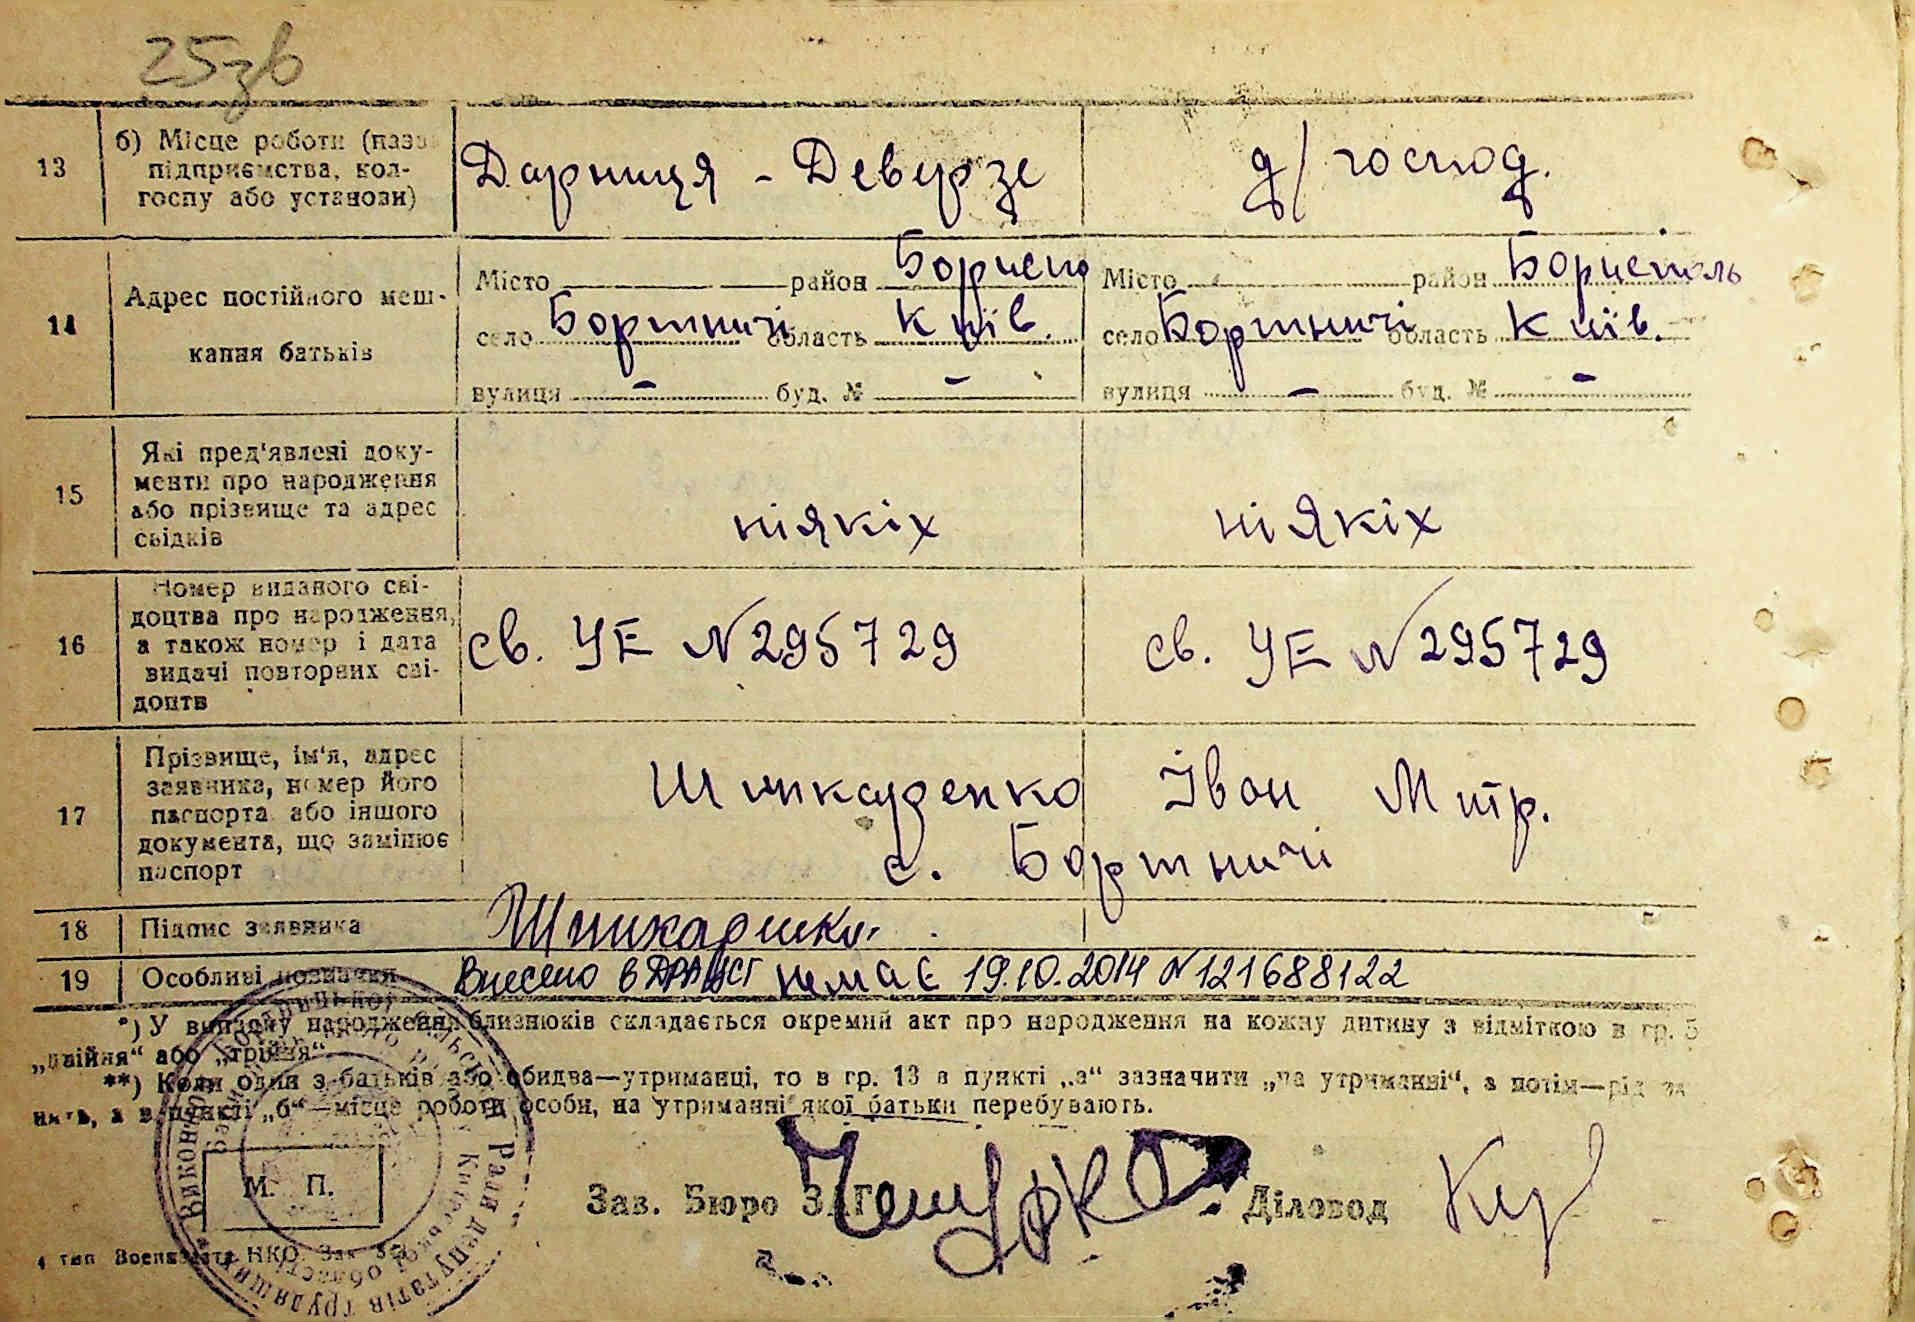 25зв
13 б) Місце роботи (назва підприємства, колгоспу або установи) Дарниця - Деверзе д/господ.
14 Адрес постійного мешкання батьків
Місто район Бориспо Місто район Бориспіль
село Бортничі область Київ. село Бортничі область Київ.
вулиця - буд. № - вулиця - буд. № -
15 Які пред'явлені документи про народження або прізвище та адрес свідків ніякіх ніякіх
16 Номер виданого свідоцтва про народження, а також номер і дата видачі повторних свідоцтв св. УЕ №295729 св. УЕ №295729
17 Прізвище, ім'я, адрес заявника, номер його паспорта або іншого документа, що замінює паспорт Шинкаренко Іван Митр.
с. Бортничі
18 Підпис заявника
19 Особливі позначки Внесено в ДРАЦСГ немає 19.10.2014 №121688122
*) У випадку народження близнюків складається окремий акт про народження на кожну дитину з відміткою в гр. 5
„двійня“ або „трійня“
**) Коли один з батьків або обидва—утриманці, то в гр. 13 в пункті „а“ зазначити „на утриманні“, а потім—рід за
нять, а в пункті „б“—місце роботи особи, на утриманні якої батьки перебувають.
М. П.
Зав. Бюро ЗАГС Діловод